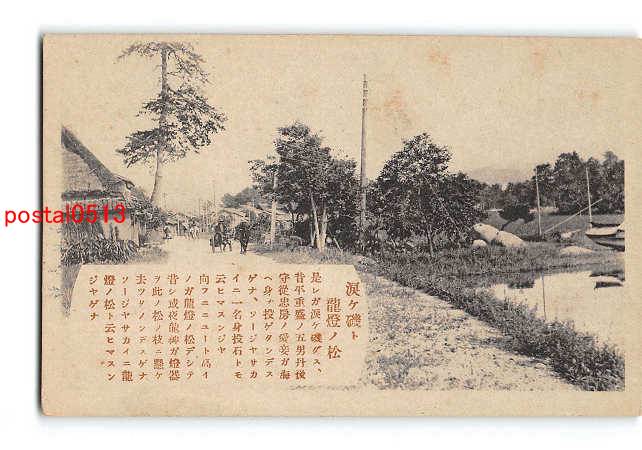 涙ケ磯ト
龍燈ノ松
是レガ涙ケ磯ダス、
昔平重盛ノ五男丹後
守従忠房ノ愛妾ガ海
ヘ身ヲ投ゲタンデス
ゲナ、ソージヤサカ
イニ一名身投石トモ
云ヒマスンジヤ
向フニニユート高イ
ノガ龍燈ノ松デシテ
昔シ或夜龍神ガ燈器
ヲ此ノ松ノ枝ニ懸ケ
去ツタノンデスゲナ
ソージヤサカイニ龍
燈ノ松ト云ヒマスン
ジヤゲナ
postal0513